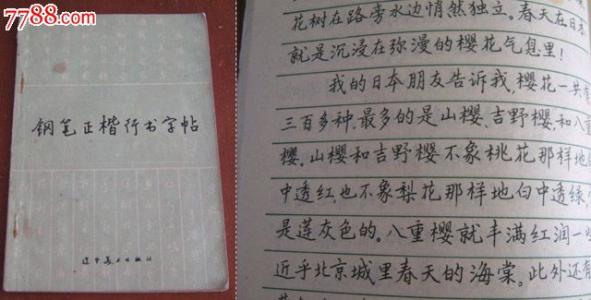 7788.com
钢笔正楷行书字帖
辽宁美术出版社
花树在路旁水边悄然独立。春天在日本
就是沉浸在弥漫的樱花气息里!
我的日本朋友告诉我,樱花一共有
三百多种,最多的是山樱、吉野樱、和八重
樱。山樱和吉野樱不象桃花那样地
中透红,也不象梨花那样地白中透绿,
是莲灰色的。八重樱就丰满红润一些
近乎北京城里春天的海棠。此外还有